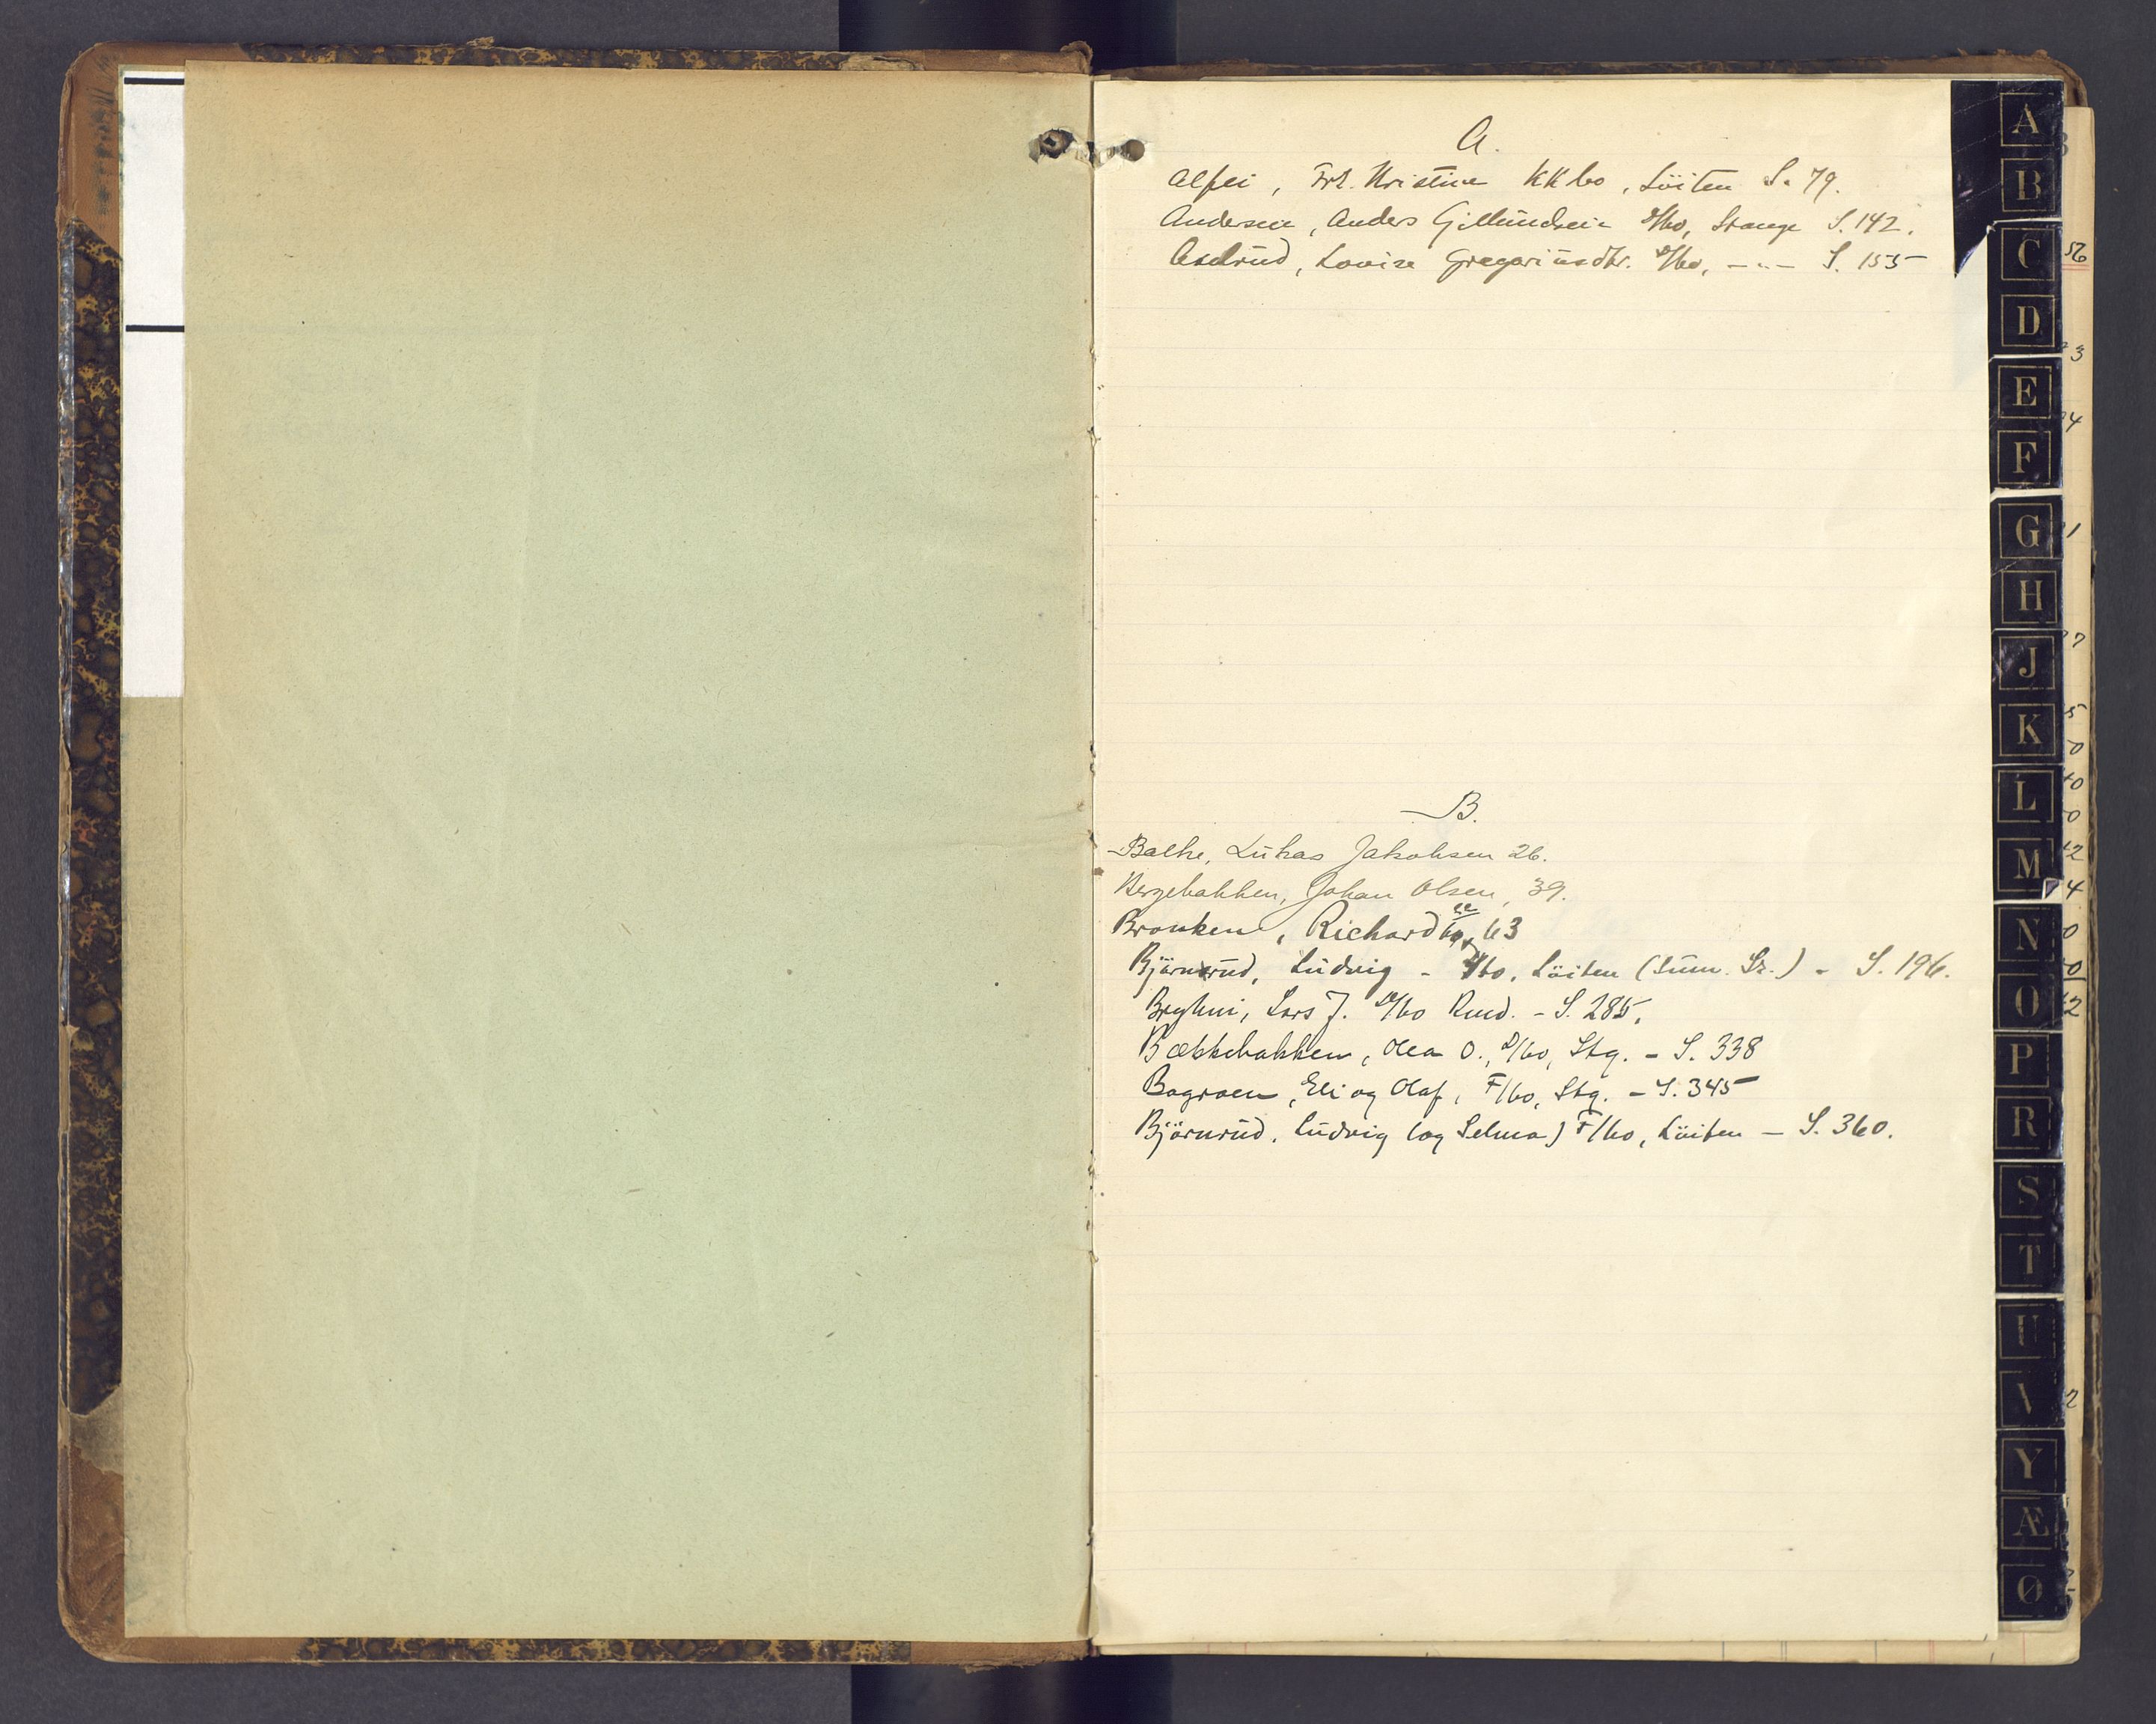 A.
Alfei, Frk. Kristine KKbo, Löiten S. 79.
Andersen, Anders Gillundsein D/bo, Stange S. 142.
Aselrud, Lovise Gregoriusdtr. D/bo, -"- S. 155
B.
Balke, Lukas Jakobsen 26.
Bergebakken, Johan Olsen, 39.
Bronken, Richard 63
Björnerud, Ludvig - bo, Löiten (sum. Sk.) - S. 196.
Bryhni, Lars J. bo Rmd. - S. 285.
Bækkebakken, Olea O., D/bo, Stg. - S. 338
Bogroen, Eli og Olaf, F/bo, Stg. - S. 345
Björnrud, Ludvig (og Selma) F/bo, Löiten - S. 360.
A
B
C
D
E
F
G
H
J
K
L
M
N
O
P
R
S
T
U
V
Y
Æ
Ø